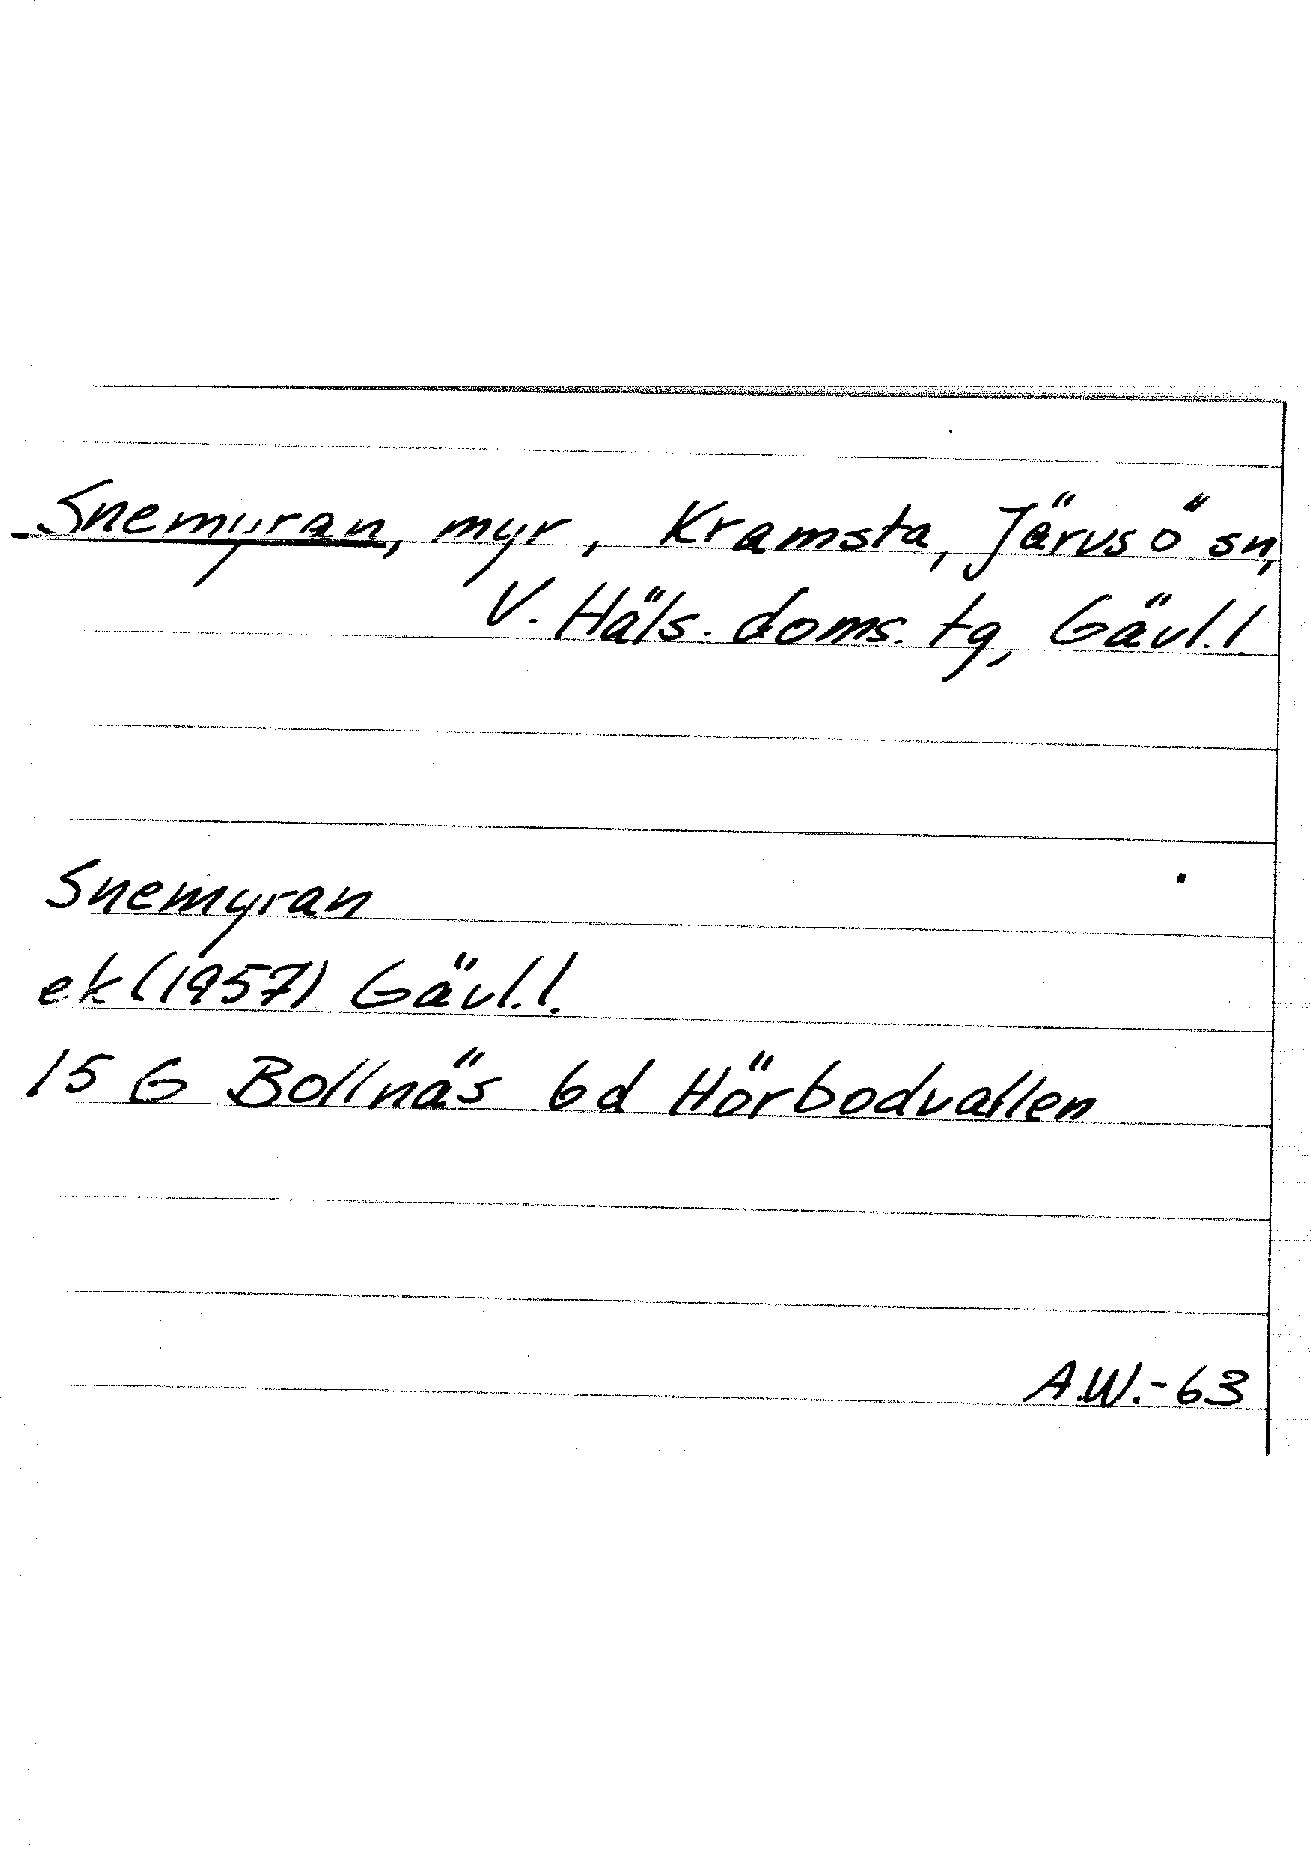 Snemyran, myr, Kramsta, Järvsö sn,
V. Häls. doms. tg, Gävl. l.
Snemyran
ek (1957) Gävl. l.
15 G Bollnäs 6d Hörbodvallen
A.W.-63